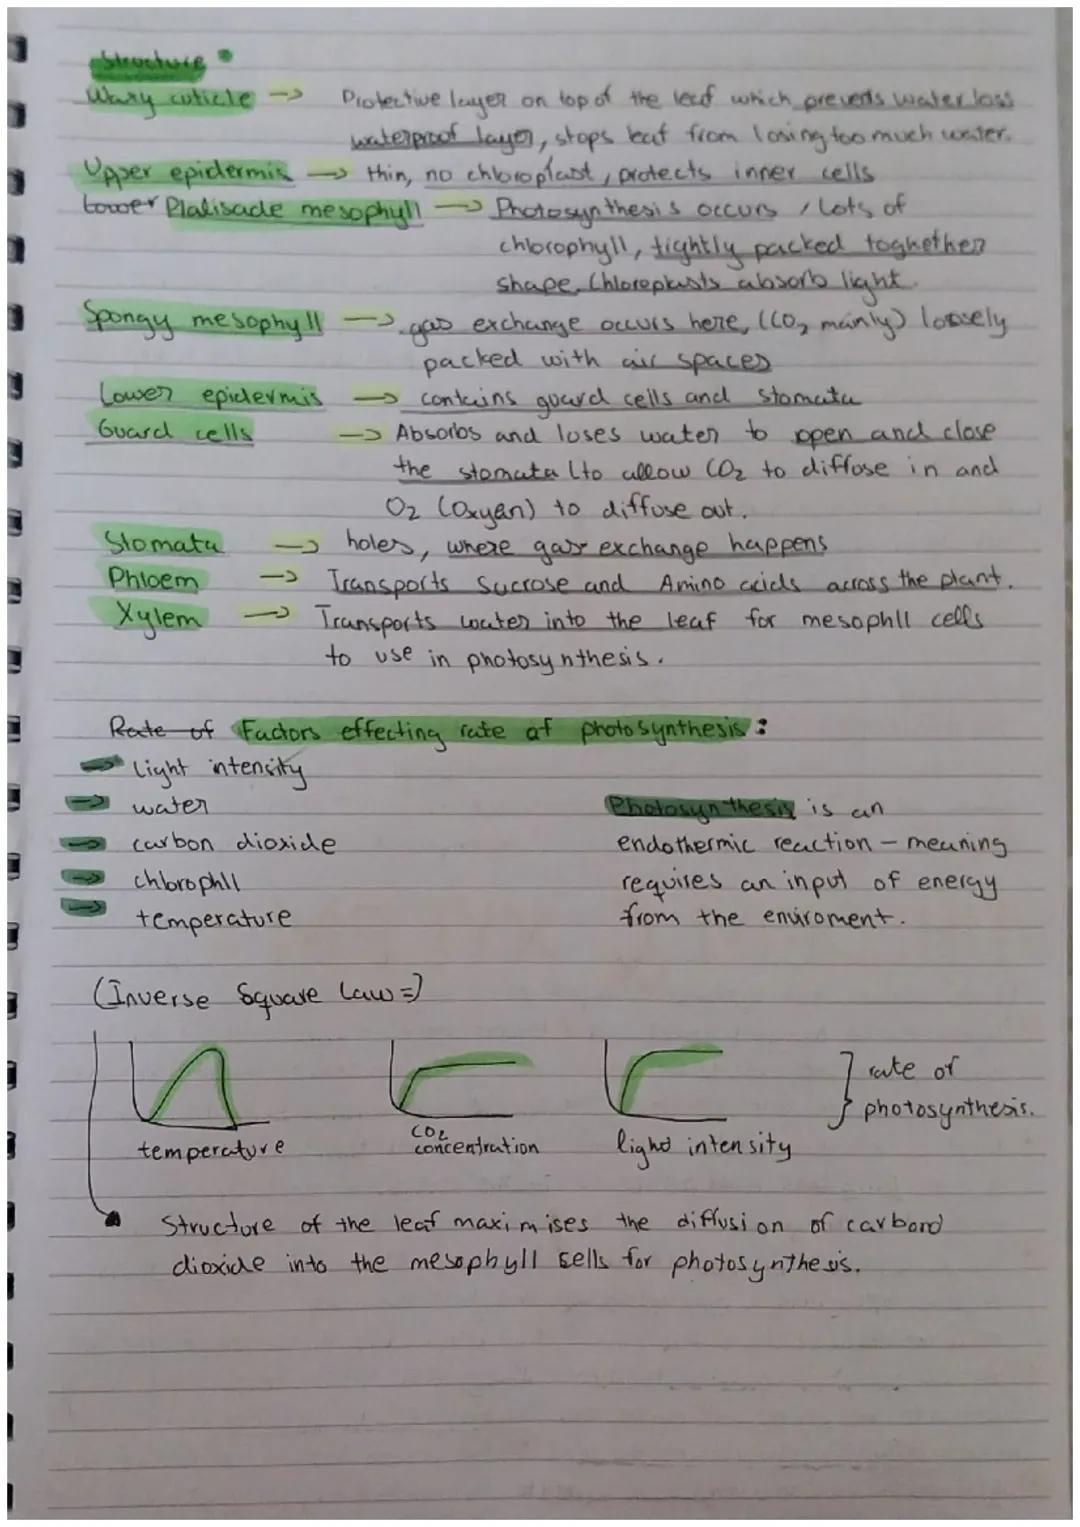 Structure
Waxy cuticle → Protective layer on top of the leaf which prevents water loss
waterproof layer, stops leaf from losing too much water.
Upper epidermis → thin, no chloroplast, protects inner cells
Lower Plalisade mesophyll → Photosynthesis occurs, Lots of
chlorophyll, tightly packed toghether
shape. Chloroplasts absorb light.
Spongy mesophyll → gas exchange occurs here, (CO₂ mainly) loosely
packed with air spaces
Lower epidermis → contains guard cells and stomata
Guard cells → Absorbs and loses water to open and close
the stomata (to allow CO₂ to diffuse in and
O₂ (Oxyen) to diffuse out.
Stomata → holes, where gas exchange happens
Phloem → Transports Sucrose and Amino acids across the plant.
Xylem → Transports water into the leaf for mesophll cells
to use in photosynthesis.
Rate of Factors effecting rate of photosynthesis:
→ Light intensity
→ water
→ carbon dioxide
→ chlorophll
→ temperature
Photosynthesis is an
endothermic reaction - meaning
requires an input of energy
from the enviroment.
(Inverse Square Law =)
temperature
CO₂
concentration
light intensity
rate of
photosynthesis.
Structure of the leaf maximises the diffusion of carbond
dioxide into the mesophyll cells for photosynthesis.